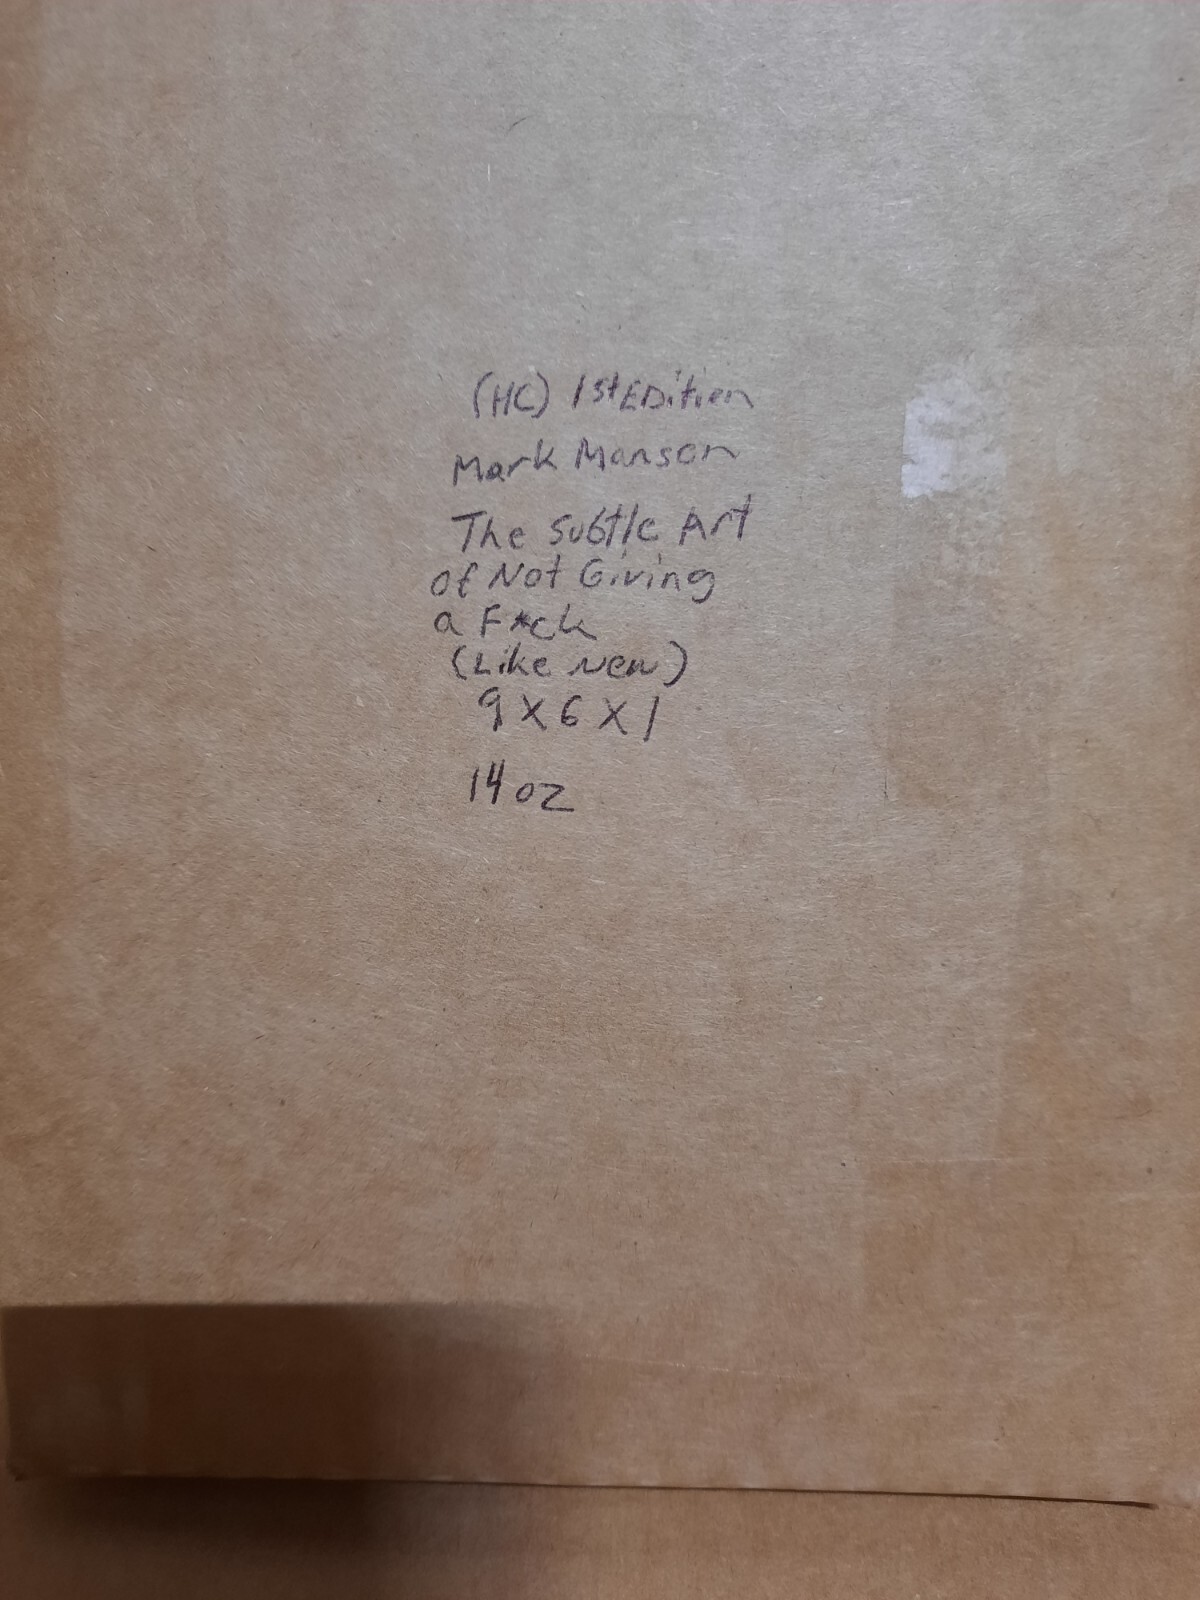 (HC) 1st EDition
Mark Manson
The Subtle Art
of Not Giving
a F*ck
(Like New)
9 X 6 X 1
14 oz